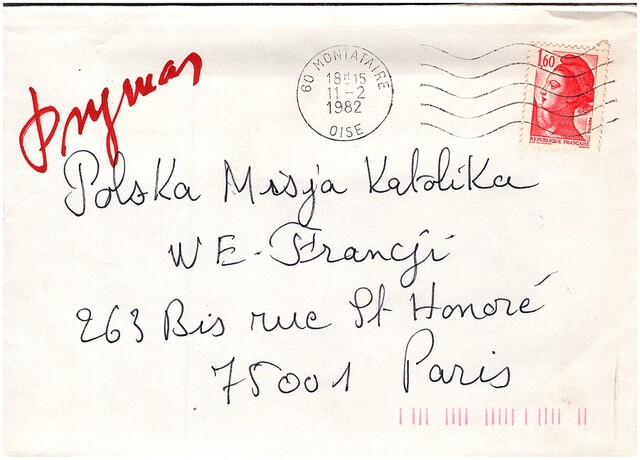 Prymas
60 MONTATAIRE
18H15
11-2
1982
OISE
1,60
REPUBLIQUE FRANÇAISE
Polska Misja Katolika
WE-Francji
263 Bis rue St Honoré
75001 Paris